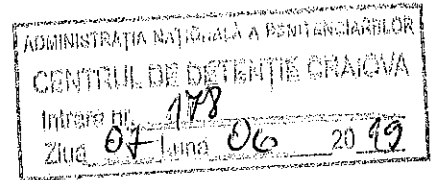 ADMINISTRAȚIA NAȚIONALĂ A PENITENCIARELOR
CENTRUL DE DETENȚIE CRAIOVA
Intrare nr. 178
Ziua 07 luna 06 20 19